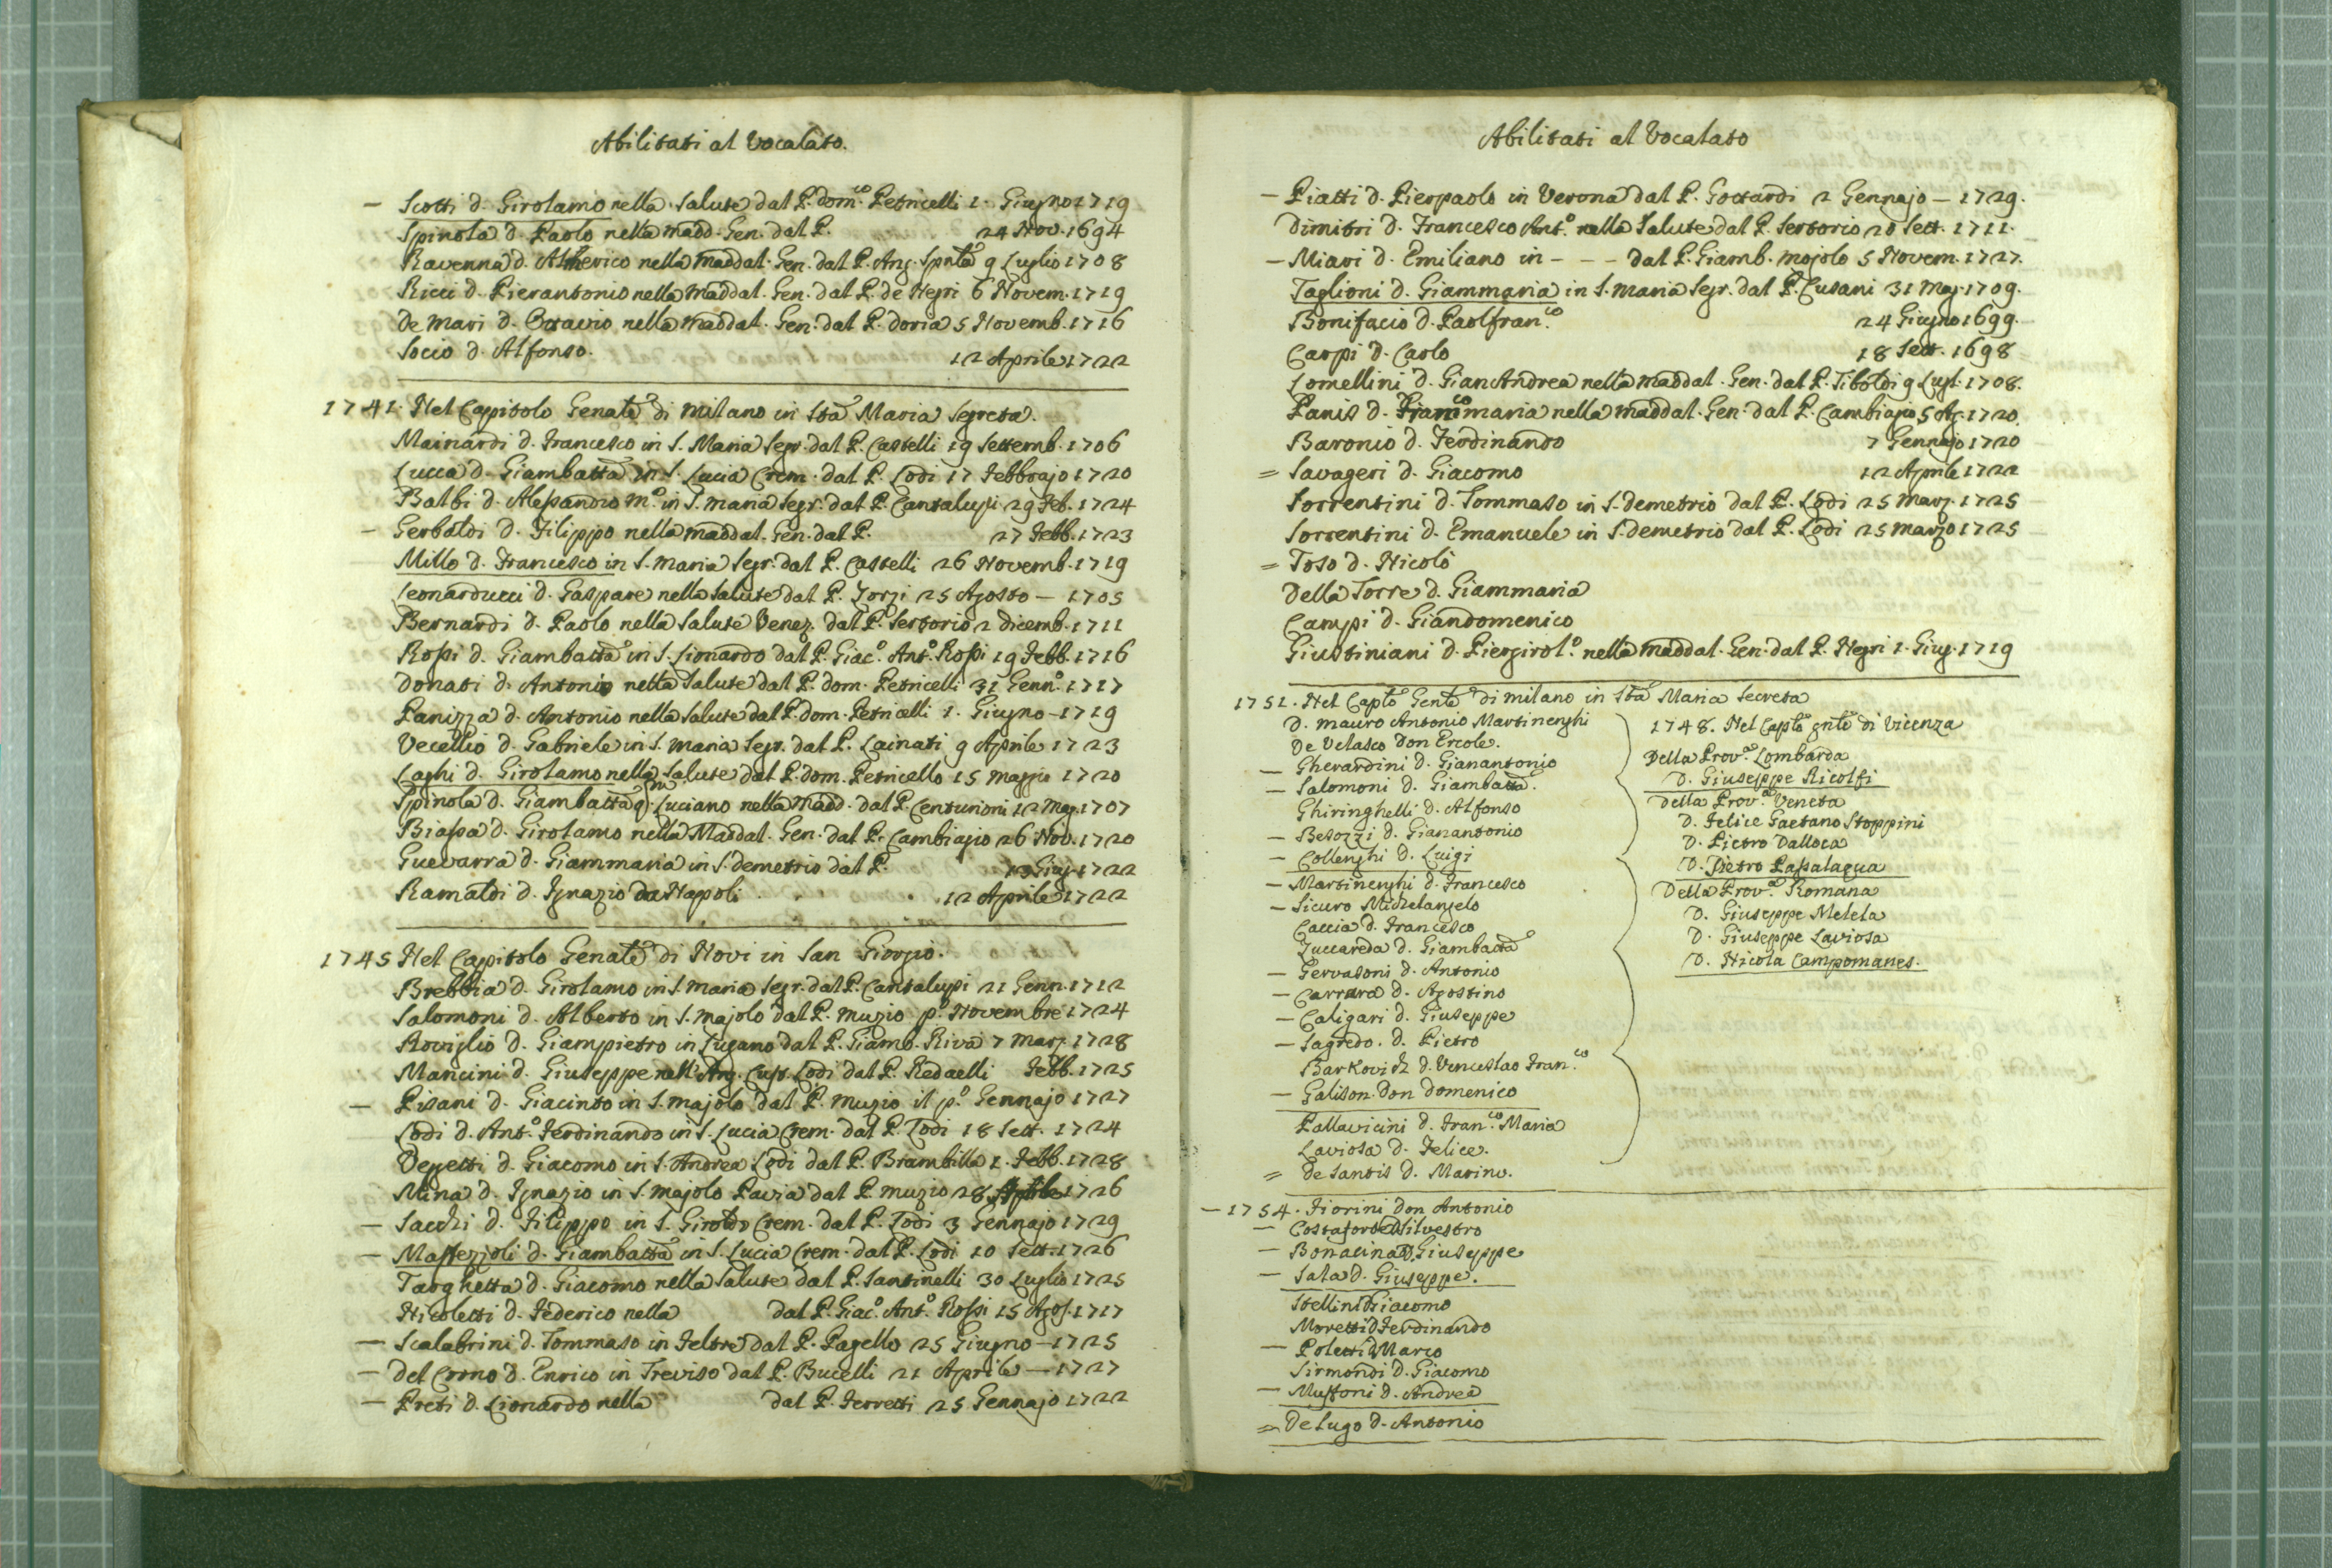 Abilitati al Vocalato.
– Scotti d. Girolamo nella Salute dal P. Dom.co Petricelli 1. Giugno 1719
Spinola d. Paolo nella Madd. Gen. dal P. 24 Nov. 1694
Ravenna d. Alberico nella Maddal. Gen. dal P. Ang. Spnla 9 Luglio 1708
Ricci d. Pierantonio nella Maddal. Gen. dal P. de Negri 6 Novem. 1719
De Mari d. Ottavio nella Maddal. Gen. dal P. Doria 5 Novemb. 1716
Socio d. Alfonso. 12 Aprile 1722
1741. Nel Capitolo Genale di Milano in Sta Maria Segreta.
Mainardi d. Francesco in S. Maria Segr. dal P. Castelli 19 Settemb. 1706
Lucca d. Giambatta in S. Lucia Crem. dal P. Lodi 17 Febbrajo 1720
Balbi d. Alessandro M.o in S. Maria Segr. dal P. Cantalupi 29 Feb. 1724
– Gerboldi d. Filippo nella Maddal. Gen. dal P. 27 Febb. 1723
Millo d. Francesco in S. Maria Segr. dal P. Castelli 26 Novemb. 1719
Leonarducci d. Gaspare nella Salute dal P. Zorzi 25 Agosto – 1705
Bernardi d. Paolo nella Salute Venez. dal P. Sertorio 2 Dicemb. 1711
Rossi d. Giambatta in S. Lionardo dal P. Giac.o Ant.o Rossi 19 Febb. 1716
Donati d. Antonio nella Salute dal P. Dom. Petricelli 31 Genn.o 1717
Panizza d. Antonio nella Salute dal P. Dom. Petricelli 1. Giugno – 1719
Vecellio d. Gabriele in S. Maria Segr. dal P. Lainati 9 Aprile 1723
Laghi d. Girolamo nella Salute dal P. Dom. Petricello 15 Maggio 1720
Spinola d. Giambatta q.m Luciano nella Madd. dal P. Centurioni 12 Mag. 1707
Biassa d. Girolamo nella Maddal. Gen. dal P. Cambiagio 26 Nov. 1720
Guevarra d. Giammaria in S. Demetrio dal P. Giug. 1722
Ramaldi d. Ignazio da Napoli . . . 12 Aprile 1722
1745 Nel Capitolo Genale di Novi in San Giorgio.
Brebbia d. Girolamo in S. Maria Segr. dal P. Cantalupi 21 Genn. 1712
Salomoni d. Alberto in S. Majolo dal P. Muzio p.o Novembre 1724
Roviglio d. Giampietro in Lugano dal P. Giamb. Riva 7 Marz. 1728
Mancini d. Giuseppe nell'Ang. Cust. Lodi dal P. Redaelli Febb. 1725
– Pisani d. Giacinto in S. Majolo dal P. Muzio il p.o Gennajo 1727
Lodi d. Ant.o Ferdinando in S. Lucia Crem. dal P. Lodi 18 Sett. 1724
Vegetti d. Giacomo in S. Andrea Lodi dal P. Brambilla 1. Febb. 1728
Mina d. Ignazio in S. Majolo Pavia dal P. Muzio 28 Aprile 1726
– Sacchi d. Filippo in S. Giroldo Crem. dal P. Lodi 3 Gennajo 1729
– Massezzoli d. Giambatta in S. Lucia Crem. dal P. Lodi 10 Sett. 1726
Targhetta d. Giacomo nella Salute dal P. Santinelli 30 Luglio 1725
Nicoletti d. Federico nella dal P. Giac.o Ant.o Rossi 15 Agos. 1717
– Scalabrini d. Tommaso in Feltre dal P. Pagello 25 Giugno – 1725
– Del Corno d. Enrico in Treviso dal P. Bucelli 21 Aprile – 1727
– Preti d. Lionardo nella dal P. Ferretti 25 Gennajo 1722
Abilitati al Vocalato
– Piatti d. Pierpaolo in Verona dal P. Gottardi 2 Gennajo – 1729.
Dimitri d. Francesco Ant.o nella Salute dal P. Sertorio 20 Sett. 1711.
– Miari d. Emiliano in – – – dal P. Giamb. Mojolo 5 Novem. 1727.
Taglioni d. Giammaria in S. Maria Segr. dal P. Cusani 31 Mag. 1709.
Bonifacio d. Paolfran.co 24 Giugno 1699.
Carpi d. Carlo 18 Sett. 1698
Lomellini d. GianAndrea nella Maddal. Gen. dal P. Tiboldi 9 Lugl. 1708.
Panis d. Fran.comaria nella Maddal. Gen. dal P. Cambiagio 5 Ag. 1720.
Baronio d. Ferdinando 7 Gennajo 1720
= Savageri d. Giacomo 12 Aprile 1722
Sorrentini d. Tommaso in S. Demetrio dal P. Lodi 25 Marz. 1725
Sorrentini d. Emanuele in S. Demetrio dal P. Lodi 25 Marzo 1725
= Toso d. Nicolò
Della Torre d. Giammaria
Campi d. Giandomenico
Giustiniani d. Piergirol.o nella Maddal. Gen. dal P. Negri 1. Giug. 1719
1751. Nel Caplo Genle di Milano in Sta Maria Secreta
D. Mauro Antonio Martinenghi
De Velasco Don Ercole.
– Gherardini d. Gianantonio
– Salomoni d. Giambatta.
Ghiringhelli d. Alfonso
– Besozzi d. Gianantonio
– Collenghi d. Luigi
– Martinenghi d. Francesco
– Sicuro Michelangelo
Caccia d. Francesco
Zuccareda d. Giambatta
– Gervasoni d. Antonio
– Carrara d. Agostino
– Caligari d. Giuseppe
– Sagredo. d. Pietro
Barkovich d. Venceslao Fran.co
– Galison Don Domenico
Pallavicini d. Fran.co Maria
Laviosa d. Felice.
= De Santis d. Marino.
1748. Nel Caplo gnle di Vicenza
Della Prov.a Lombarda
D. Giuseppe Ricolfi
Della Prov.a Veneta
D. Felice Gaetano Stoppini
D. Pietro Dalloca
D. Pietro Passalaqua
Della Prov.a Romana
D. Giuseppe Melela
D. Giuseppe Laviosa
D. Nicola Campomanes.
– 1754. Fiorini Don Antonio
– Costaforte d. Silvestro
– Bonacina D. Giuseppe
– Sala d. Giuseppe.
Stellini D Giacomo
Moretti D Ferdinando
– Poletti D Marco
Sirmondi d. Giacomo
– Mussoni d. Andrea
= De Lugo d. Antonio